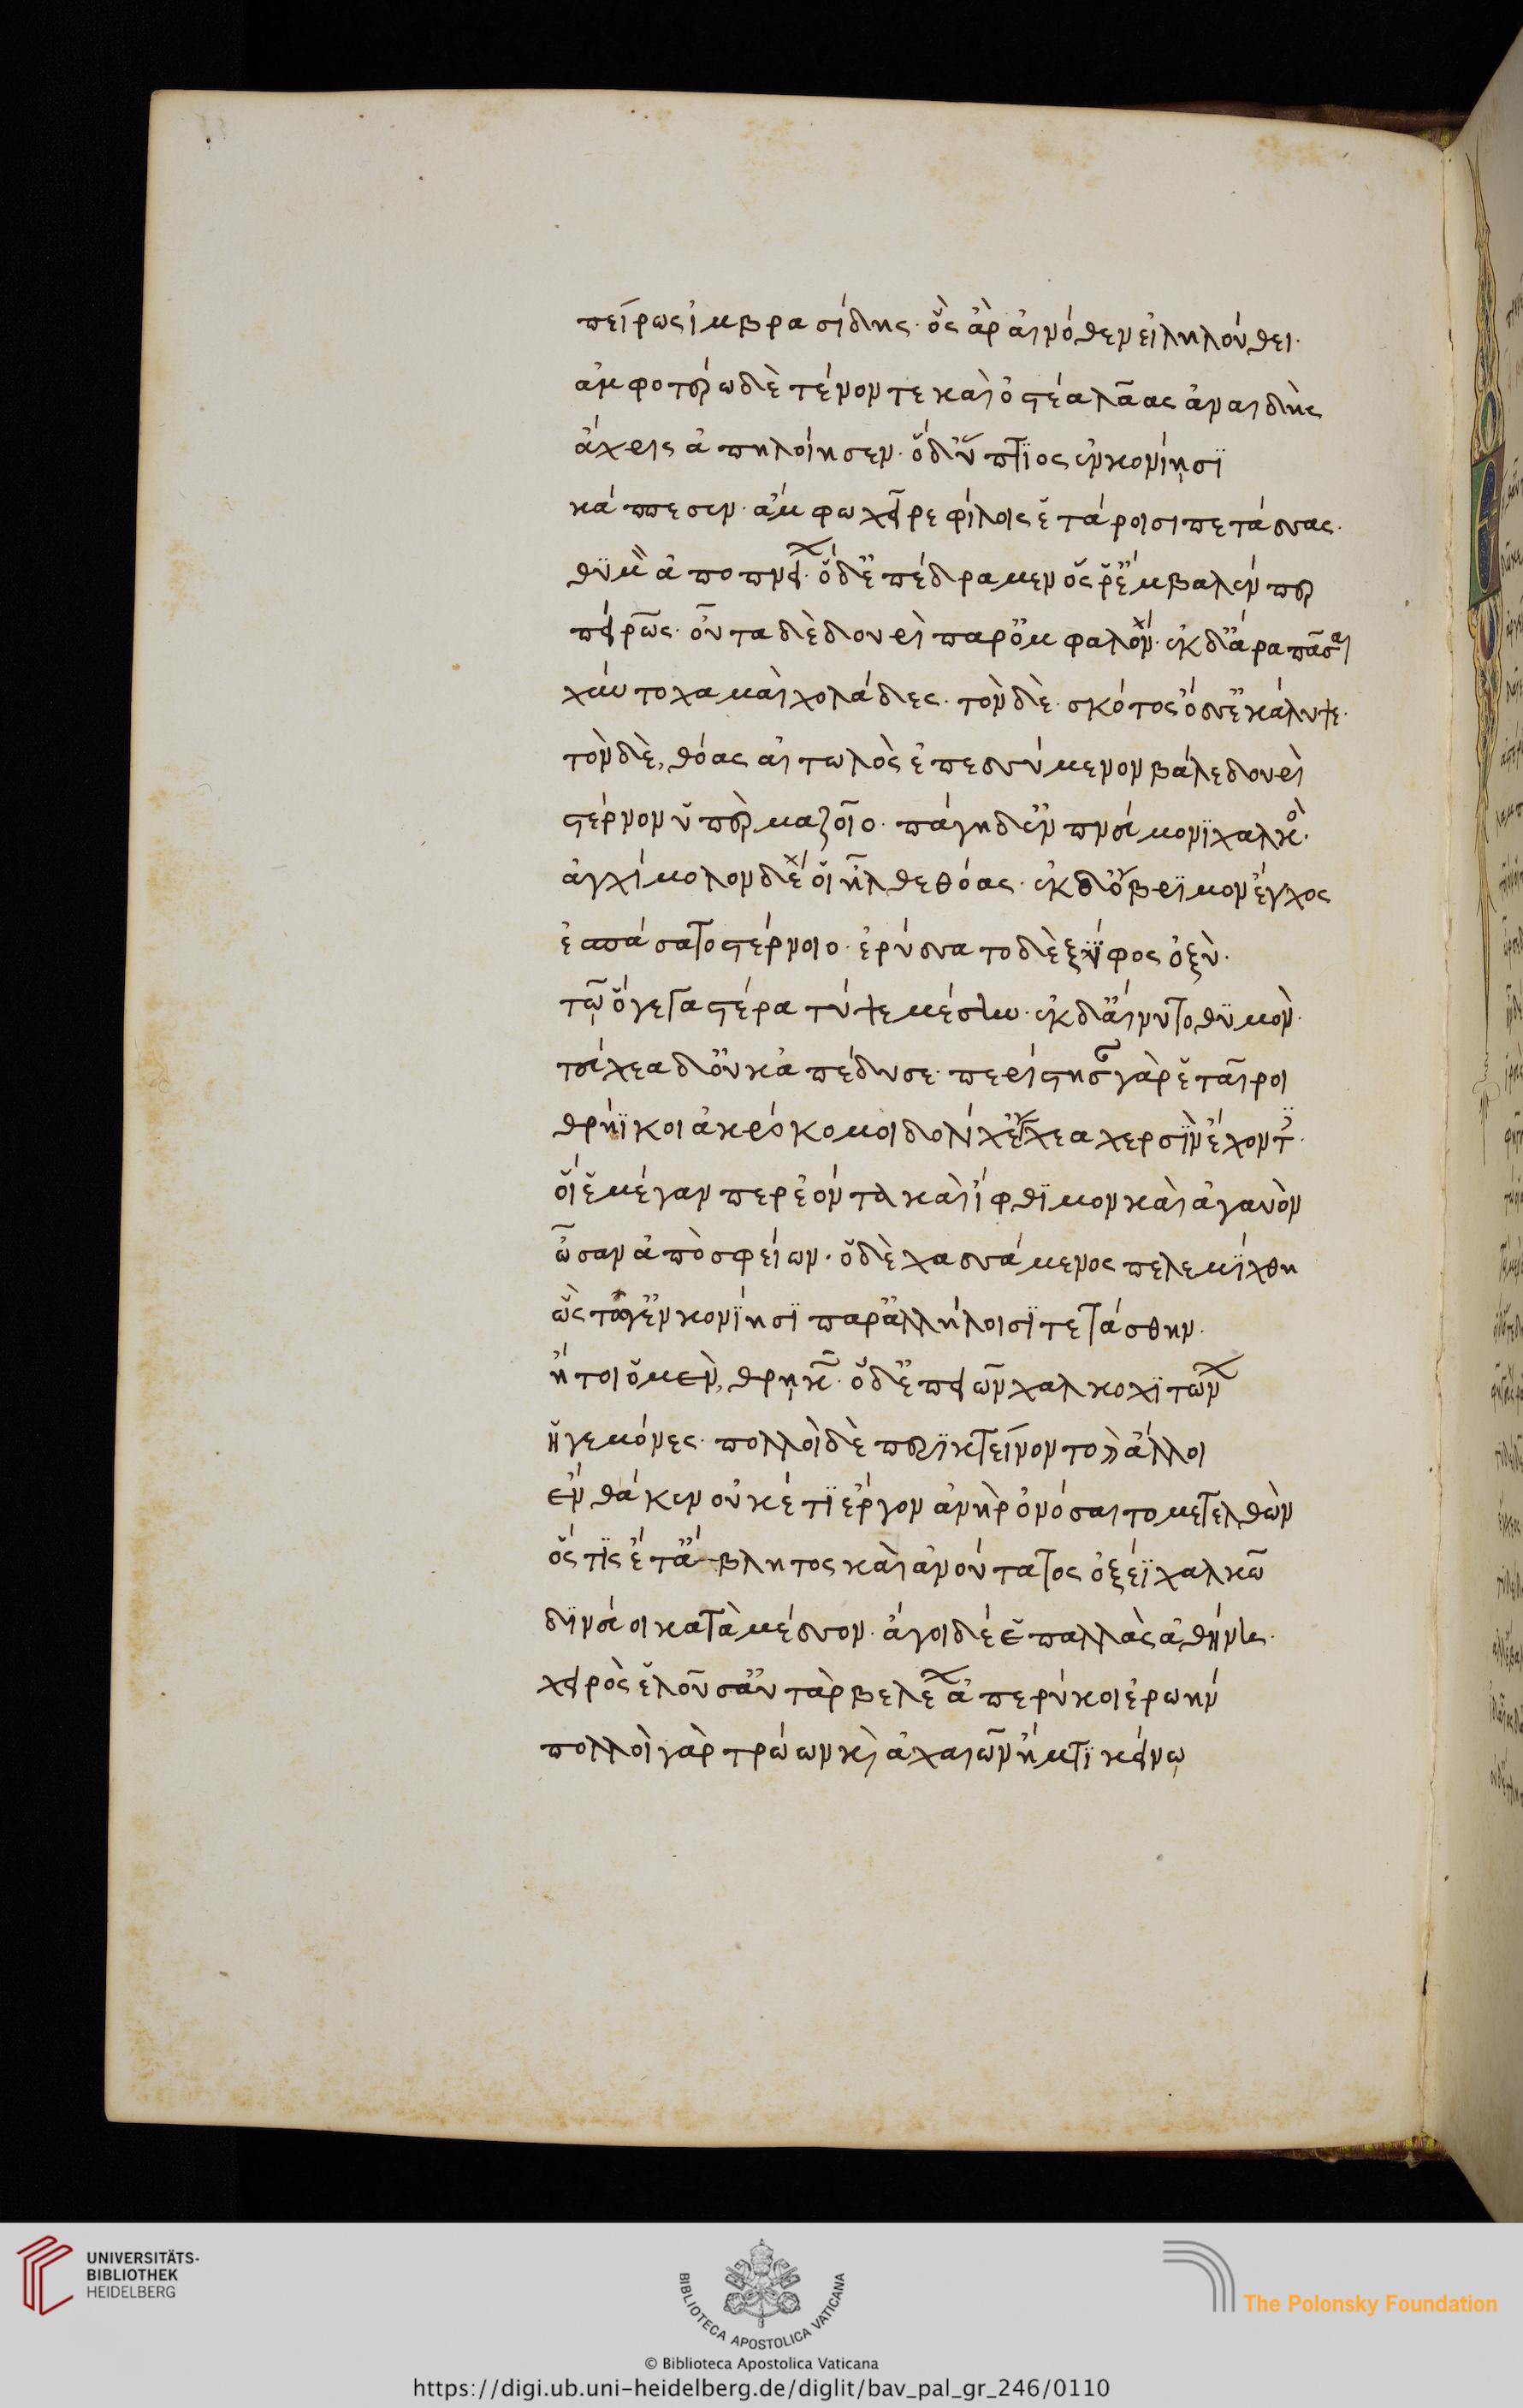 πείρως ἰμβρασίδης· ὃς ἂρ αἰνόθεν εἰληλούθει·
ἀμφοτέρω δὲ τένοντε καὶ ὀστέα λᾶας ἀναιδὴς
ἄχρις ἀπηλοίησεν· ὁ δ' ὕπτιος ἐν κονίῃσι
κάππεσεν· ἄμφω χεῖρε φίλοις ἑτάροισι πετάσσας·
θυμὸν ἀποπνείων· ὁ δ' ἐπέδραμεν ὅς ῥ' ἔμβαλέν περ
πείρως· οὖτα δὲ δουρὶ παρ' ὀμφαλόν· ἐκ δ' ἄρα πᾶσαι
χύντο χαμαὶ χολάδες· τὸν δὲ σκότος ὄσσ' ἐκάλυψε·
τὸν δὲ, θόας αἰτωλὸς ἐπεσσύμενον βάλε δουρὶ
στέρνον ὑπὲρ μαζοῖο· πάγη δ' ἐν πνεύμονι χαλκός·
ἀγχίμολον δέ οἱ ἦλθε θόας· ἐκ δ' ὄβριμον ἔγχος
ἐσπάσατο στέρνοιο· ἐρύσσατο δὲ ξίφος ὀξὺ·
τῷ ὅγε γαστέρα τύψε μέσην· ἐκ δ' αἴνυτο θυμὸν·
τεύχεα δ' οὐκ ἀπέδυσε· περίστησαν γὰρ ἑταῖροι
θρήϊκοι ἀκρόκομοι δολίχ' ἔγχεα χερσὶν ἔχοντες·
οἵ ἑ μέγαν περ ἐόντα καὶ ἴφθιμον καὶ ἀγαυὸν
ὦσαν ἀπὸ σφείων· ὁ δὲ χασσάμενος πελεμίχθη
ὣς τώγ' ἐν κονίησι παρ' ἀλλήλοισι τετάσθην·
ἤτοι ὁ μὲν, θρῃκῶν· ὁ δ' ἐπειῶν χαλκοχιτώνων
ἡγεμόνες· πολλοὶ δὲ περικτείνοντο καὶ ἄλλοι
ἔνθά κεν οὐκέτι ἔργον ἀνὴρ ὀνόσαιτο μετελθὼν
ὅς τις ἔτ' ἄβλητος καὶ ἀνούτατος ὀξέϊ χαλκῶ
δινεύοι κατὰ μέσσον· ἄγοι δέ ἑ παλλὰς ἀθήνης·
χειρὸς ἑλοῦσ' αὐτὰρ βελέων ἀπερύκοι ἐρωήν
πολλοὶ γὰρ τρώων καὶ ἀχαιῶν ἤματι κείνῳ
UNIVERSITÄTS-
BIBLIOTHEK
HEIDELBERG
BIBLIOTECA APOSTOLICA VATICANA
The Polonsky Foundation
© Biblioteca Apostolica Vaticana
https://digi.ub.uni-heidelberg.de/diglit/bav_pal_gr_246/0110